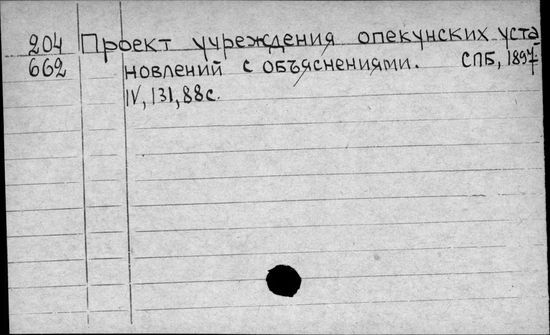 204 Проект учреждения опекунских уста-
662 новлений с объяснениями. СПБ, 1897
IV, 131, 88с.